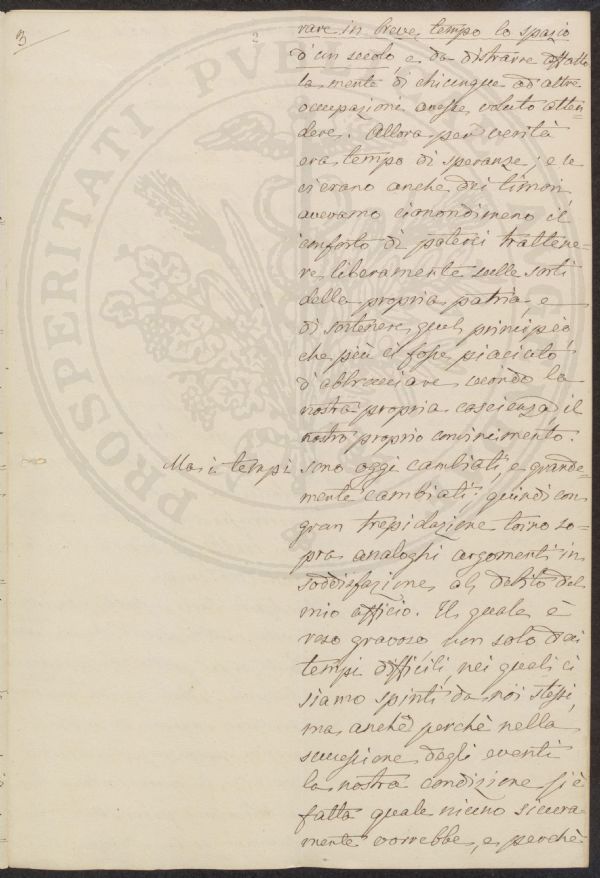 3
2
rare in breve tempo lo spazio
d'un secolo e da distrarre affatto
la mente di chiunque ad altre
occupazioni avesse voluto atten=
dere. Allora per verità
era tempo di speranze; e se
ci erano anche dei timori
avevamo ciònondimeno il
conforto di poterci trattene=
re liberamente sulle sorti
della propria patria, e
di sostenere quel principio
che più ci fosse piaciuto
d'abbracciare secondo la
nostra propria coscienza, il
nostro proprio convincimento.
Ma i tempi sono oggi cambiati, e grande=
mente cambiati: quindi con
gran trepidazione torno so=
pra analoghi argomenti in
soddisfazione al debito del
mio officio. Il quale è
reso gravoso, non solo dai
tempi difficili, nei quali ci
siamo spinti da noi stessi,
ma anche perchè nella
successione degli eventi
la nostra condizione si è
fatta quale niuno sicura=
mente vorrebbe, e perchè
PROSPERITATI PVBLICAE